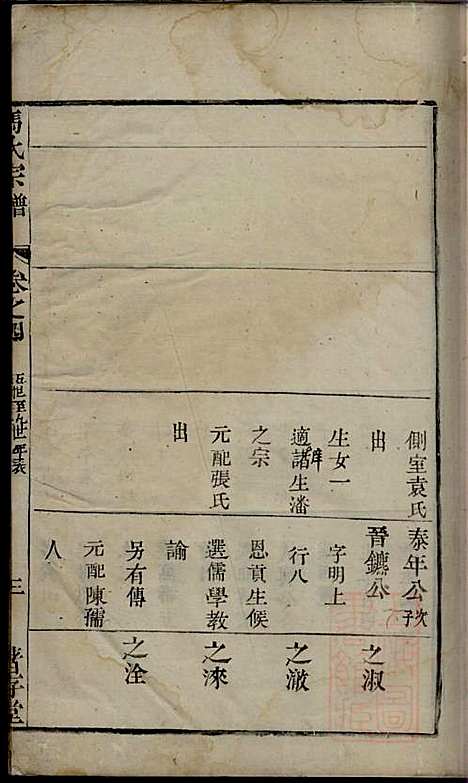 側室袁氏
生女一
適諸生潘
之宗
元配張氏
出
泰年公次子
出
晉鑣公
字明上
行八
恩貢生候
選儒學教
諭
另有傳
元配陳孺
人
之淑
之澂
之淶
之洤
氏宗譜
卷之四
三